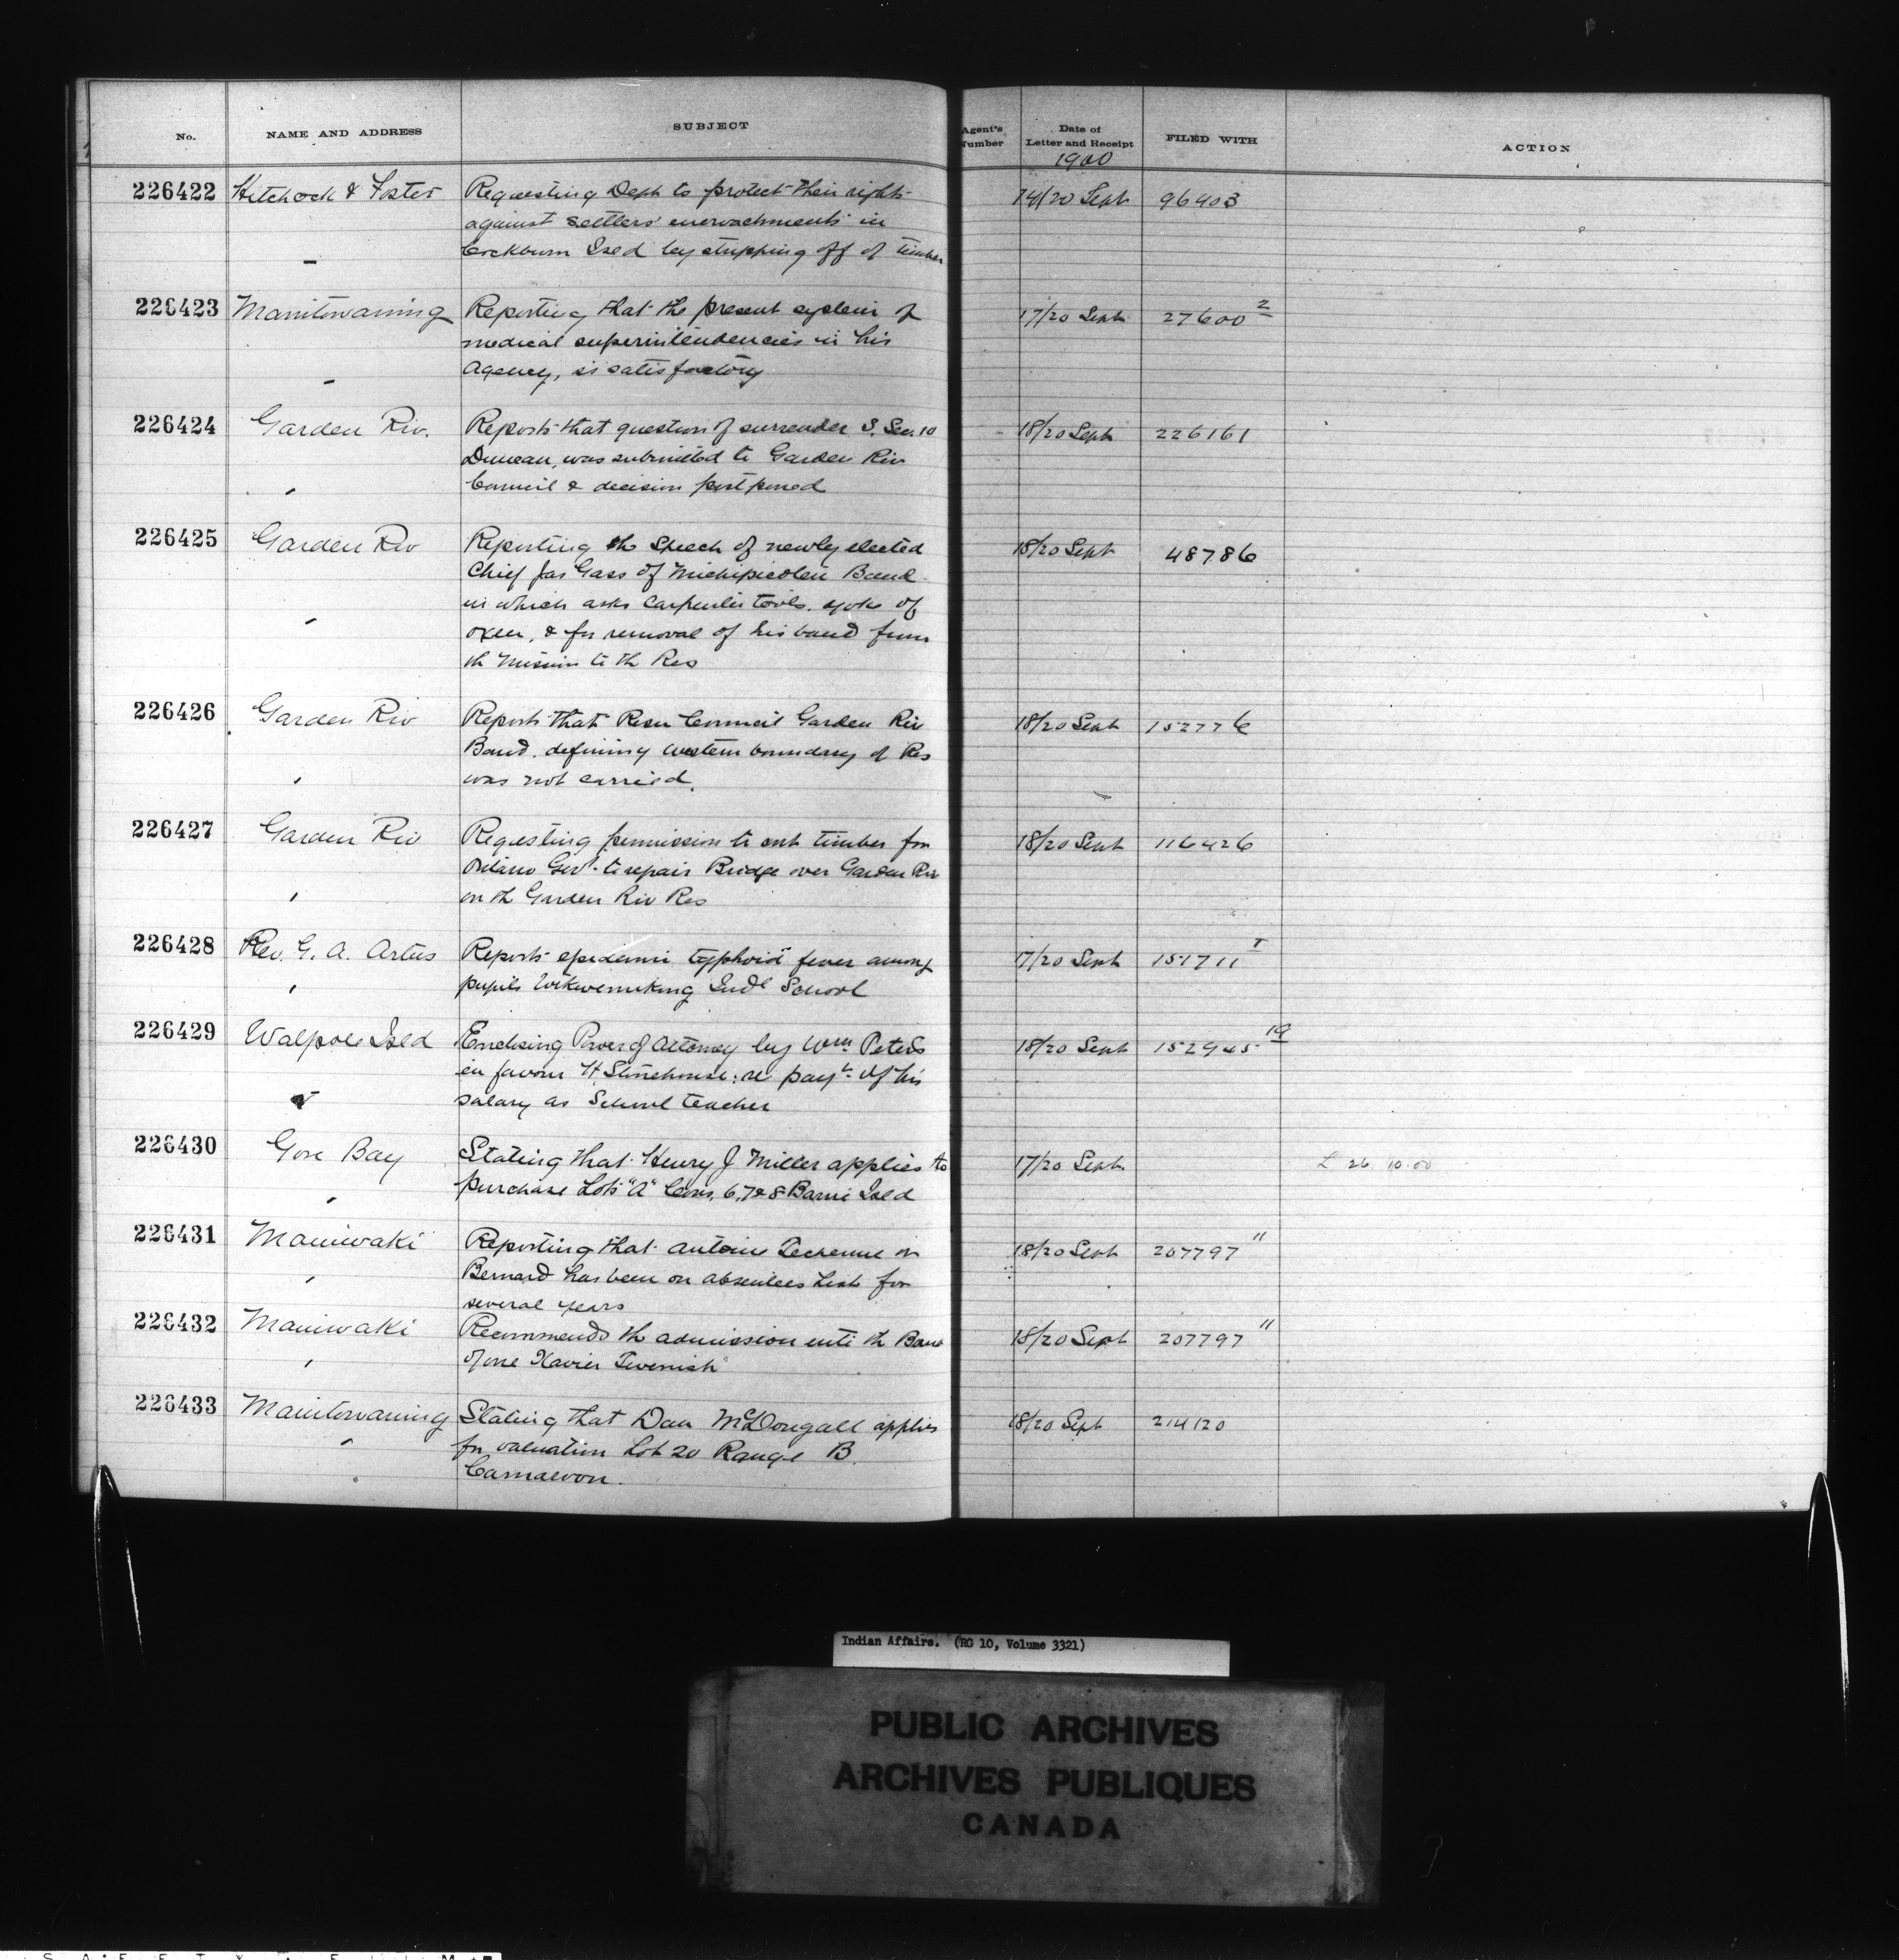 No. NAME AND ADDRESS SUBJECT Agent's Number Date of Letter and Receipt FILED WITH ACTION
1900
226422 Hitchock & Foster Requesting Dept to protect their rights 14/20 Sept 96403
against settlers' encroachments in
Cockburn Isld by stripping off of timber
226423 Manitowaning Reporting that the present system of 17/20 Sept 27600 2
medical superintendencies in his
Agency, is satisfactory
226424 Garden Riv. Reports that question of surrender S. Sec. 10 18/20 Sept 226161
Duncan, was submitted to Garden Riv
Council & decision postponed
226425 Garden Riv Reporting th speech of newly elected 18/20 Sept 48786
Chief Jas Gass of Michipicoten Band
in which asks Carpenter tools, yoke of
oxen, & for removal of his band from
th Mission to th Res
226426 Garden Riv Reports that Resn Council Garden Riv 18/20 Sept 152776
Band, defining western boundary of Res
was not carried.
226427 Garden Riv Requesting permission to cut timber for 18/20 Sept 116426
Ontario Govt to repair Bridge over Garden Riv
on th Garden Riv Res
226428 Rev. G. A. Artus Reports epidemic typhoid fever among 17/20 Sept 151711
pupils Wikwemiking Indl School
226429 Walpole Isld Enclosing Power of Attorney by Wm Peters 18/20 Sept 152945 19
in favour H. Stonehouse: re payt of his
salary as School teacher
226430 Gore Bay Stating that Henry J Miller applies to 17/20 Sept L 26 10.00
purchase Lots "A" Cons. 6, 7 & 8 Barrie Isld
226431 Maniwaki Reporting that Antoine or 18/20 Sept 207797 11
Bernard has been on absentees list for
several years
226432 Maniwaki Recommends th admission into th Band 18/20 Sept 207797 11
of one Xavier
226433 Manitowaning Stating that Dan McDougall applies 18/20 Sept 214120
for valuation Lot 20 Range B.
Carnarvon.
Indian Affairs. (RG 10, Volume 3321)
PUBLIC ARCHIVES
ARCHIVES PUBLIQUES
CANADA